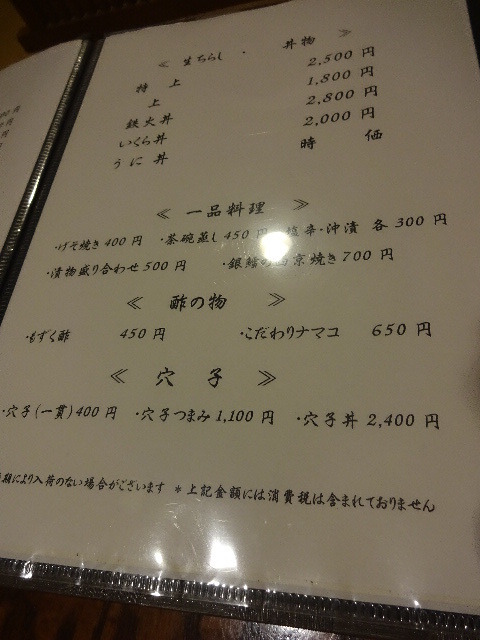 ≪ 生ちらし ・ 丼物 ≫
特上 2,500 円
上 1,800 円
鉄火丼 2,800 円
いくら丼 2,000 円
うに丼 時価
≪ 一品料理 ≫
・げそ焼き 400 円 ・茶碗蒸し 450 円 塩辛・沖漬 各 300 円
・漬物盛り合わせ 500 円 ・銀鱈の西京焼き 700 円
≪ 酢の物 ≫
・もずく酢 450 円 ・こだわりナマコ 650 円
≪ 穴子 ≫
・穴子(一貫) 400 円 ・穴子つまみ 1,100 円 ・穴子丼 2,400 円
により入荷のない場合がございます ＊上記金額には消費税は含まれておりません